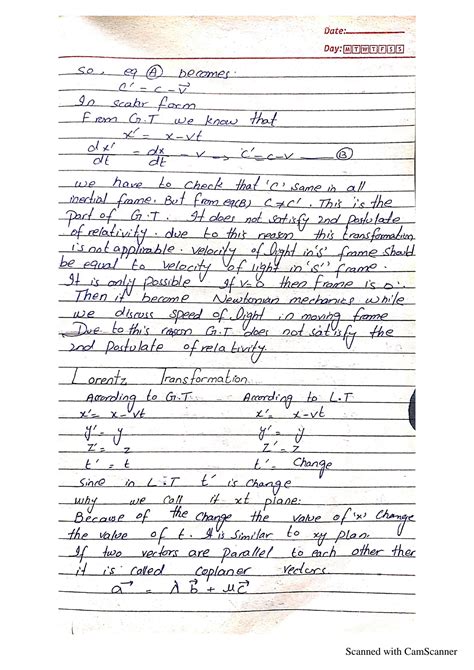 Date:
Day: M T W T F S S
so, eq Ⓐ becomes:
c' = c - v⃗
In scalar form
From G.T we know that
x' = x - vt
dx'/dt = dx/dt - v → c' = c - v Ⓑ
we have to check that 'c' same in all
inertial frame. But from eq(B) c ≠ c'. This is the
part of G.T. It does not satisfy 2nd Postulate
of relativity. due to this reason this transformation
is not applicable. velocity of light in 's' frame should
be equal to velocity of light in 's'' frame.
It is only possible if v=0 then frame is
Then it become Newtonian mechanics while
we discuss speed of light in moving frame
Due to this reason G.T does not satisfy the
2nd Postulate of relativity
Lorentz Transformation
According to G.T According to L.T
x' = x - vt x' = x - vt
y' = y y' = y
z' = z z' = z
t' = t t' = Change
Since in L.T t' is change
why we call it xt plane:
Because of the change the value of 'x' Change
the value of t. It is similar to xy plan.
If two vectors are parallel to each other then
it is called coplaner vectors
a⃗ = λb⃗ + μc⃗
Scanned with CamScanner